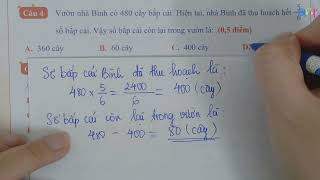 Câu 4
Vườn nhà Bình có 480 cây bắp cải. Hiện tại, nhà Bình đã thu hoạch hết
số bắp cải. Vậy số bắp cải còn lại trong vườn là: (0,5 điểm)
A. 360 cây B. 60 cây C. 400 cây D.
Số bắp cải Bình đã thu hoạch là:
480 × 5/6 = 2400/6 = 400 (cây)
Số bắp cải còn lại trong vườn là:
480 - 400 = 80 (cây)